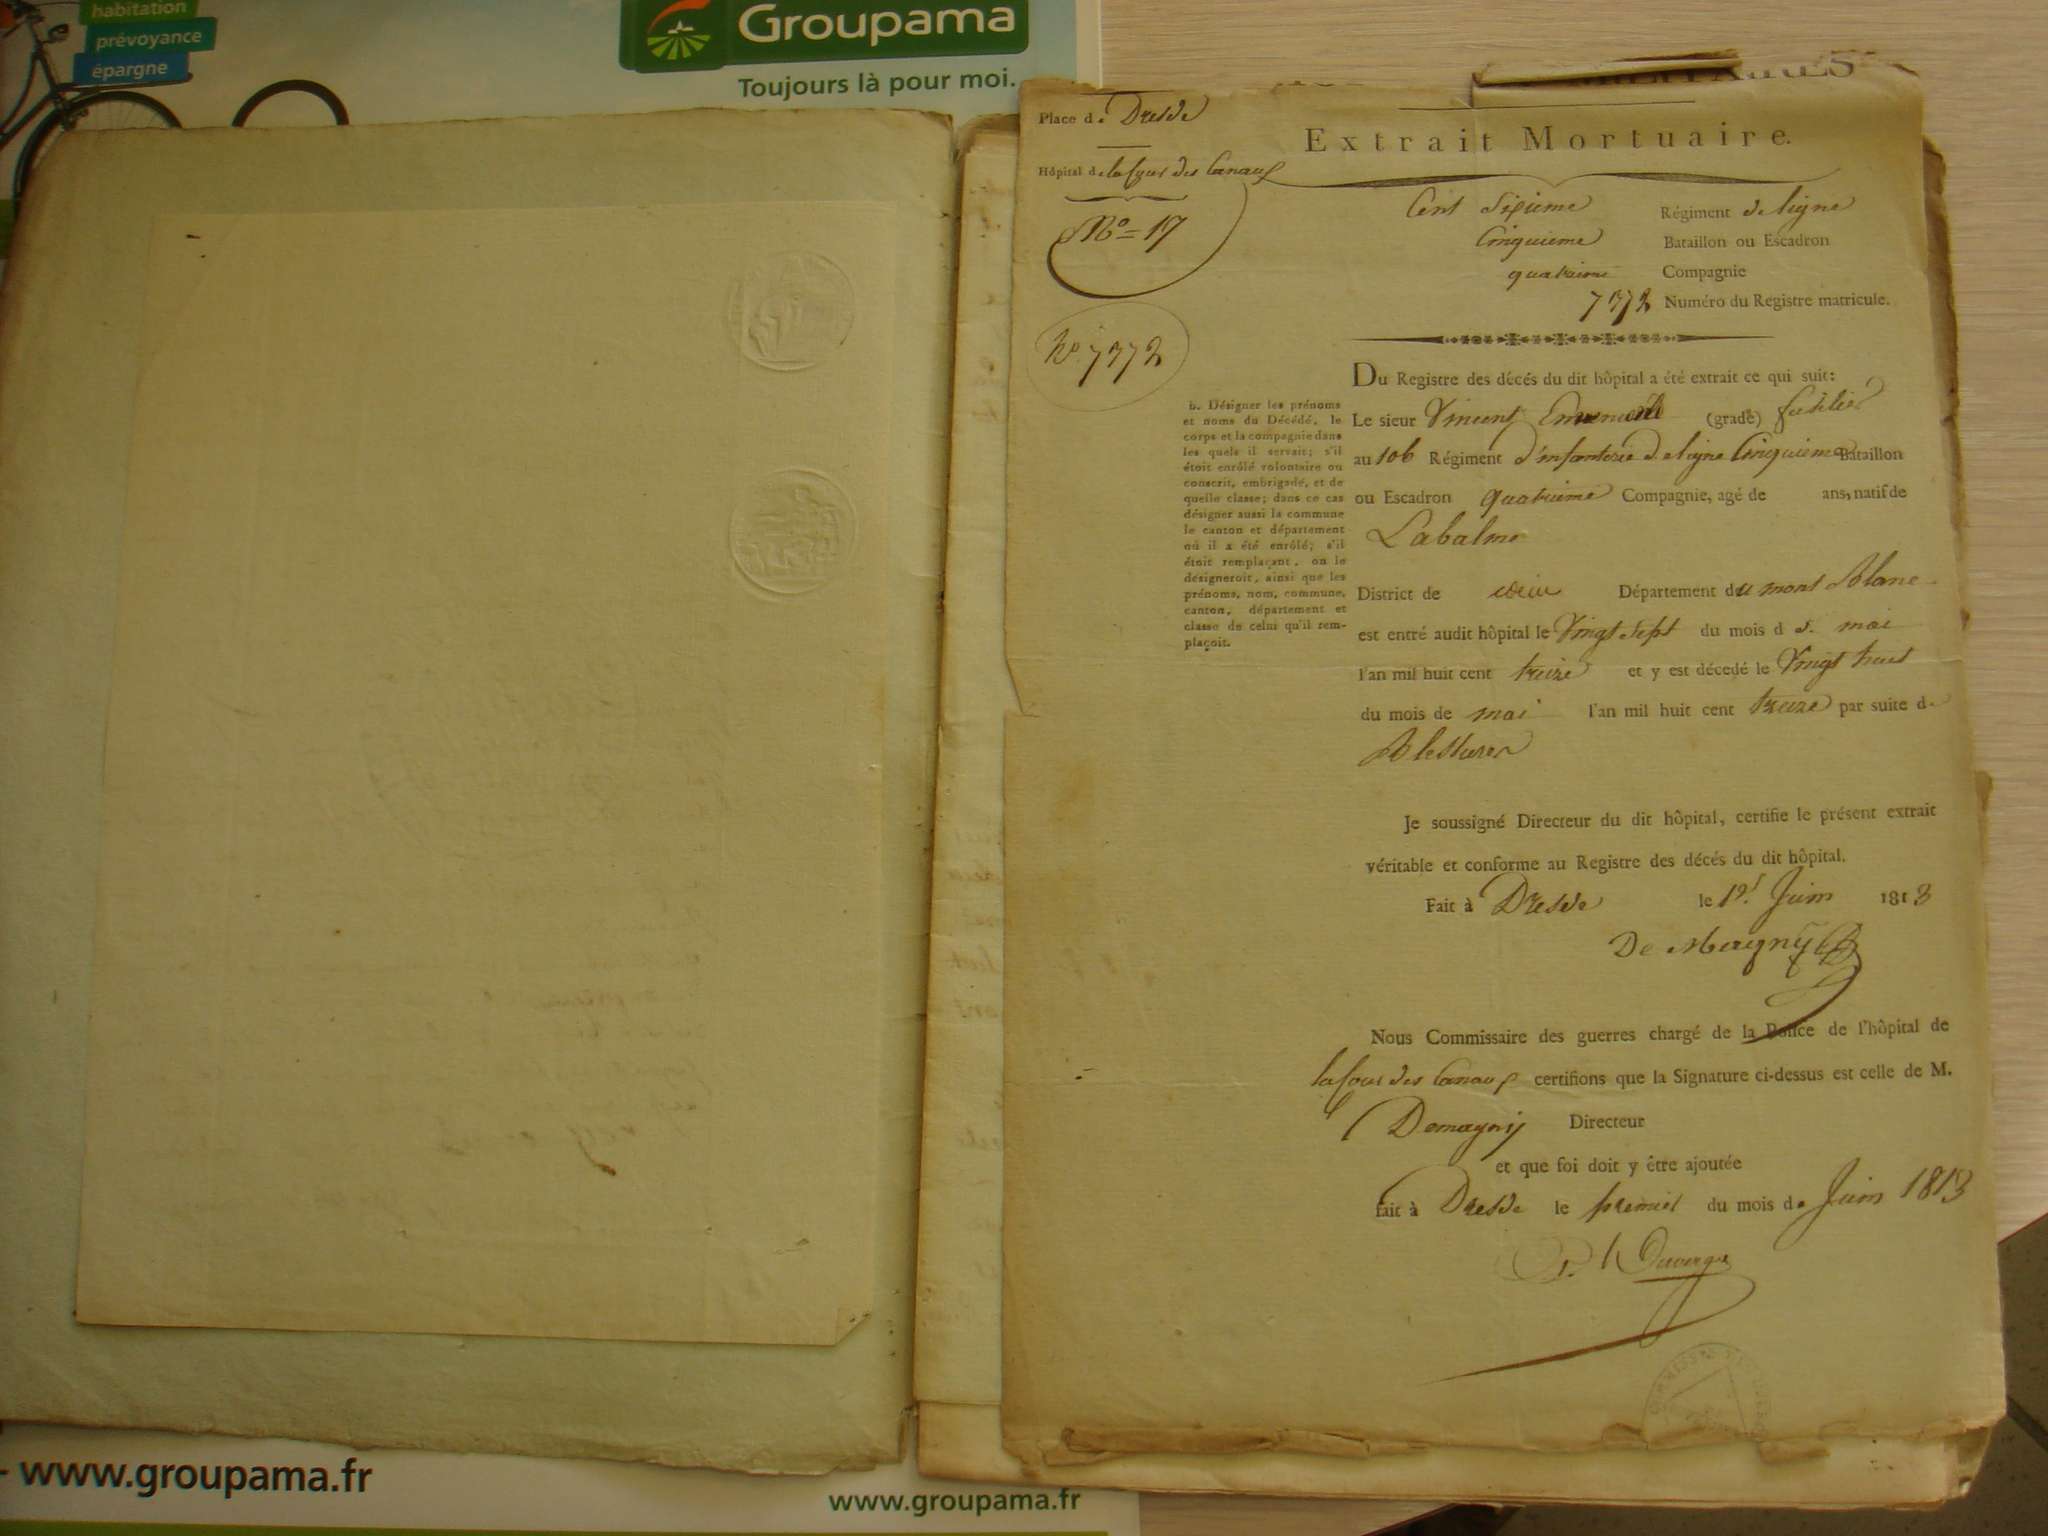 habitation
prévoyance
épargne
Groupama
Toujours là pour moi.
Place de Dresde
Extrait Mortuaire.
Hôpital de la Cour des Canaux
No = 17
Cent Sixieme Régiment de ligne
Cinquieme Bataillon ou Escadron
quatrieme Compagnie
7372 Numéro du Registre matricule.
No 7372
Du Registre des décés du dit hôpital a été extrait ce qui suit:
b. Désigner les prénoms
et noms du Décédé, le
corps et la compagnie dans
les quels il servait; s'il
étoit enrôlé volontaire ou
conscrit, embrigadé, et de
quelle classe; dans ce cas
désigner aussi la commune
le canton et département
où il a été enrôlé; s'il
étoit remplaçant, on le
désigneroit, ainsi que les
prénoms, nom, commune,
canton, département et
classe de celui qu'il rem-
plaçoit.
Le sieur Vincent (grade) fusilier
au 106 Régiment d'infanterie de ligne Cinquieme Bataillon
ou Escadron quatrieme Compagnie, agé de ans, natif de
Labalme
District de Département du mont Blanc
est entré audit hôpital le Vingt Sept du mois de mai
l'an mil huit cent treize et y est décedé le Vingt huit
du mois de mai l'an mil huit cent treize par suite de
Blessures
Je soussigné Directeur du dit hôpital, certifie le présent extrait
véritable et conforme au Registre des décés du dit hôpital.
Fait à Dresde le 1er Juin 1813
De Magny
Nous Commissaire des guerres chargé de la Police de l'hôpital de
la Cour des Canaux certifions que la Signature ci-dessus est celle de M.
Demagny Directeur
et que foi doit y être ajoutée
fait à Dresde le premier du mois de Juin 1813
www.groupama.fr
www.groupama.fr